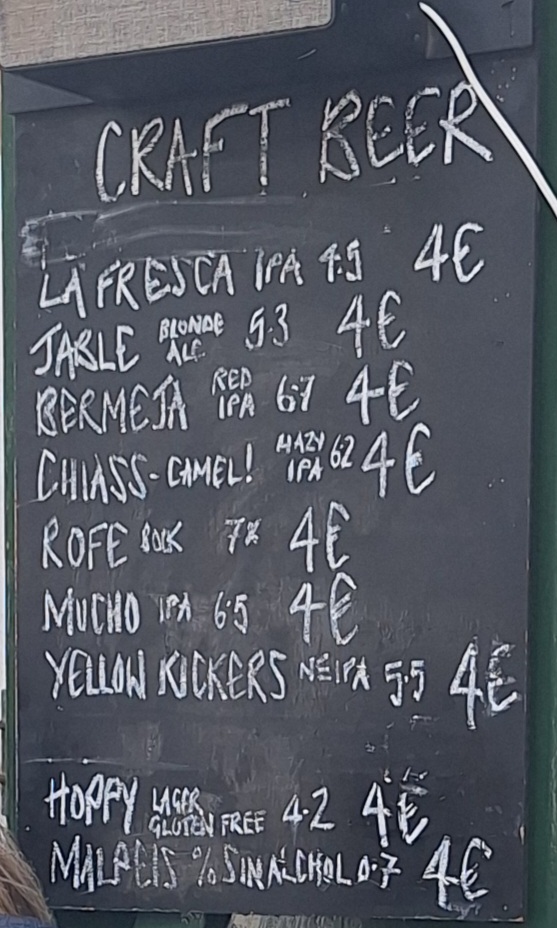 CRAFT BEER
LA FRESCA IPA 4.5 4€
JABLE BLONDE ALE 5.3 4€
BERMEJA RED IPA 6.7 4€
CHIASS-CAMEL! HAZY IPA 6.2 4€
ROFE BOCK 7% 4€
MUCHO IPA 6.5 4€
YELLOW KICKERS NEIPA 5.5 4€
HOPPY LAGER GLUTEN FREE 4.2 4€
MALPEIS % SIN ALCHOL 0.7 4€